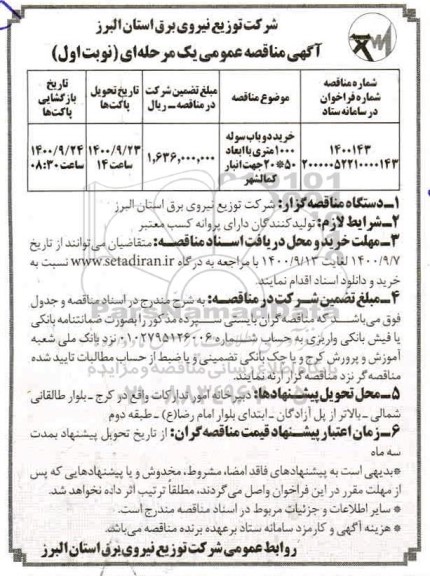 شرکت توزیع نیروی برق استان البرز
آگهی مناقصه عمومی یک مرحله‌ای (نوبت اول)
شماره مناقصه شماره فراخوان در سامانه ستاد
موضوع مناقصه
مبلغ تضمین شرکت در مناقصه ـ ریال
تاریخ تحویل پاکت‌ها
تاریخ بازگشایی پاکت‌ها
۱۴۰۰۱۴۳
۲۰۰۰۰۰۵۲۲۱۰۰۰۱۴۳
خرید دو باب سوله ۱۰۰۰ متری با ابعاد ۵۰*۲۰ جهت انبار کمالشهر
۱,۶۳۶,۰۰۰,۰۰۰
۱۴۰۰/۹/۲۳ ساعت ۱۴
۱۴۰۰/۹/۲۴ ساعت ۰۸:۳۰
۱ـ دستگاه مناقصه گزار: شرکت توزیع نیروی برق استان البرز
۲ـ شرایط لازم: تولیدکنندگان دارای پروانه کسب معتبر
۳ـ مهلت خرید و محل دریافت اسناد مناقصه: متقاضیان می‌توانند از تاریخ
۱۴۰۰/۹/۷ لغایت ۱۴۰۰/۹/۱۳ با مراجعه به درگاه www.setadiran.ir نسبت به
خرید و دانلود اسناد اقدام نمایند.
۴ـ مبلغ تضمین شرکت در مناقصه: به شرح مندرج در اسناد مناقصه و جدول
فوق می‌باشد که مناقصه گران بایستی سپرده مذکور را بصورت ضمانتنامه بانکی
یا فیش بانکی واریزی به حساب شماره ۰۱۰۲۷۹۵۱۲۶۰۰۶ نزد بانک ملی شعبه
آموزش و پرورش کرج و یا چک بانکی تضمینی و یا ضبط از حساب مطالبات تایید شده
مناقصه گر نزد مناقصه گزار ارئه نمایند.
۵ـ محل تحویل پیشنهادها: دبیرخانه امور تدارکات واقع در کرج ـ بلوار طالقانی
شمالی ـ بالاتر از پل آزادگان ـ ابتدای بلوار امام رضا(ع) ـ طبقه دوم
۶ـ زمان اعتبار پیشنهاد قیمت مناقصه گران: از تاریخ تحویل پیشنهاد بمدت
سه ماه
*بدیهی است به پیشنهادهای فاقد امضا، مشروط، مخدوش و یا پیشنهادهایی که پس
از مهلت مقرر در این فراخوان واصل می‌گردند، مطلقاً ترتیب اثر داده نخواهد شد.
* سایر اطلاعات و جزئیات مربوط در اسناد مناقصه مندرج است.
* هزینه آگهی و کارمزد سامانه ستاد برعهده برنده مناقصه می‌باشد.
روابط عمومی شرکت توزیع نیروی برق استان البرز